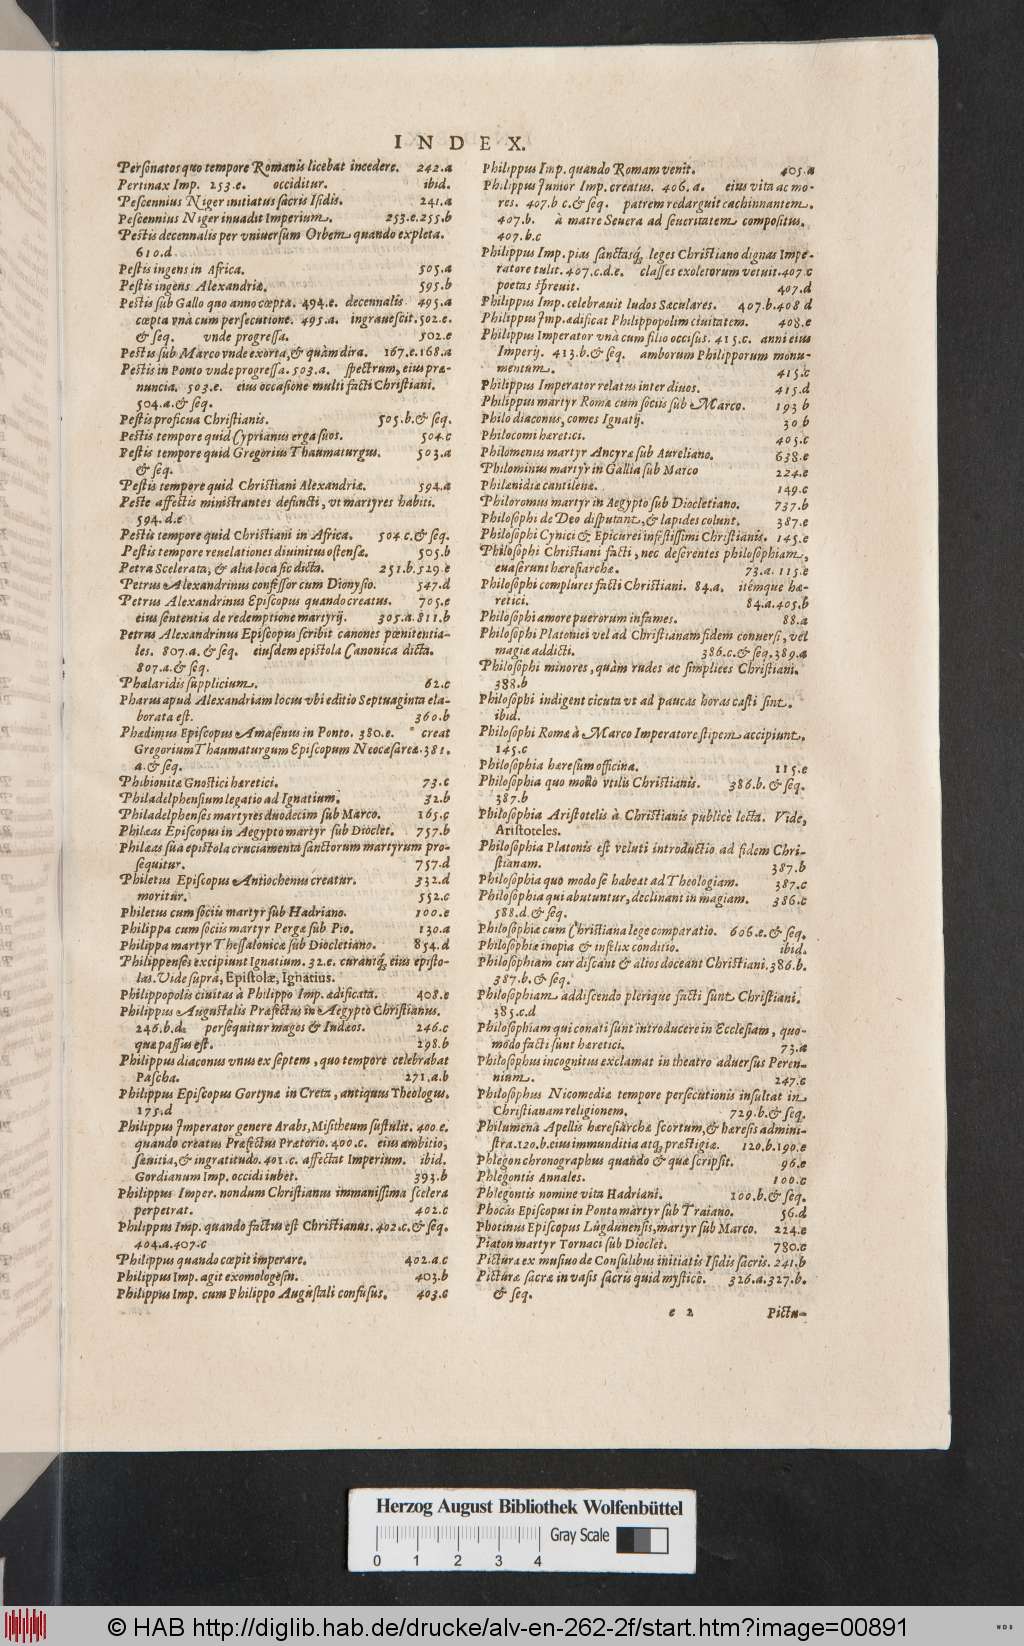 INDEX.
Personatos quo tempore Romanis licebat incedere. 242.a
Pertinax Imp. 253.e. occiditur. ibid.
Pescennius Niger initiatus sacris Isidis. 241.a
Pescennius Niger inuadit Imperium. 253.e.255.b
Pestis decennalis per vniuersum Orbem quando expleta.
610.d
Pestis ingens in Africa. 505.a
Pestis ingens Alexandriæ. 595.b
Pestis sub Gallo quo anno cœpta. 494.e. decennalis 495.a
cœpta vnà cum persecutione. 495.a. ingrauescit. 502.e.
& seq. vnde progressa. 502.e
Pestis sub Marco vnde exorta, & quàm dira. 167.e.168.a
Pestis in Ponto vnde progressa. 503.a. spectrum, eius præ-
nuncia. 503.e. eius occasione multi facti Christiani.
504.a.& seq.
Pestis proficua Christianis. 505.b.& seq.
Pestis tempore quid Cyprianus erga suos. 504.c
Pestis tempore quid Gregorius Thaumaturgus. 503.a
& seq.
Pestis tempore quid Christiani Alexandriæ. 594.a
Peste affectis ministrantes defuncti, vt martyres habiti.
594.d.e
Pestis tempore quid Christiani in Africa. 504.c.& seq.
Pestis tempore reuelationes diuinitus ostensæ. 505.b
Petra Scelerata, & alia loca sic dicta. 251.b.529.e
Petrus Alexandrinus confessor cum Dionysio. 547.d
Petrus Alexandrinus Episcopus quando creatus. 705.e
eius sententia de redemptione martyrij. 305.a.811.b
Petrus Alexandrinus Episcopus scribit canones pœnitentia-
les. 807.a.& seq. eiusdem epistola Canonica dicta.
807.a.& seq.
Phalaridis supplicium. 62.c
Pharus apud Alexandriam locus vbi editio Septuaginta ela-
borata est. 360.b
Phædimus Episcopus Amasenus in Ponto. 380.e. creat
Gregorium Thaumaturgum Episcopum Neocæsareæ. 381.
a.& seq.
Phibionitæ Gnostici hæretici. 73.c
Philadelphensium legatio ad Ignatium. 32.b
Philadelphenses martyres duodecim sub Marco. 165.c
Phileas Episcopus in Aegypto martyr sub Dioclet. 757.b
Phileas sua epistola cruciamenta sanctorum martyrum pro-
sequitur. 757.d
Philetus Episcopus Antiochenus creatur. 332.d
moritur. 552.c
Philetus cum socijs martyr sub Hadriano. 100.e
Philippa cum socijs martyr Pergæ sub Pio. 130.a
Philippa martyr Thessalonicæ sub Diocletiano. 854.d
Philippenses excipiunt Ignatium. 32.e. curantq́; eius episto-
las. Vide supra, Epistolæ, Ignatius.
Philippopolis ciuitas à Philippo Imp. ædificata. 408.e
Philippus Augustalis Præfectus in Aegypto Christianus.
246.b.d. persequitur magos & Iudæos. 246.c
quæ passus est. 298.b
Philippus diaconus vnus ex septem, quo tempore celebrabat
Pascha. 271.a.b
Philippus Episcopus Gortynæ in Creta, antiquus Theologus.
175.d
Philippus Imperator genere Arabs, Misitheum sustulit. 400.e.
quando creatus Præfectus Prætorio. 400.c. eius ambitio,
sæuitia, & ingratitudo. 401.c. affectat Imperium. ibid.
Gordianum Imp. occidi iubet. 393.b
Philippus Imper. nondum Christianus immanissima scelera
perpetrat. 402.c
Philippus Imp. quando factus est Christianus. 402.c.& seq.
404.a.407.c
Philippus quando cœpit imperare. 402.a.c
Philippus Imp. agit exomologesin. 403.b
Philippus Imp. cum Philippo Augustali confusus. 403.c
Philippus Imp. quando Romam venit. 405.a
Philippus Junior Imp. creatus. 406.a. eius vita ac mo-
res. 407.b c.& seq. patrem redarguit cachinnantem.
407.b. à matre Seuera ad seueritatem compositus.
407.b.c
Philippus Imp. pias sanctasq́; leges Christiano dignas Impe-
ratore tulit. 407.c.d.e. classes exoletorum vetuit. 407 c
poetas spreuit. 407.d
Philippus Imp. celebrauit ludos Sæculares. 407.b.408 d
Philippus Jmp. ædificat Philippopolim ciuitatem. 408.e
Philippus Imperator vnà cum filio occisus. 415.c. anni eius
Imperij. 413.b.& seq. amborum Philipporum monu-
mentum. 415.c
Philippus Imperator relatus inter diuos. 415.d
Philippus martyr Romæ cum socijs sub Marco. 193 b
Philo diaconus, comes Ignatij. 30 b
Philocomi hæretici. 405.c
Philomenus martyr Ancyræ sub Aureliano. 638.e
Philominus martyr in Gallia sub Marco 224.e
Philænidiæ cantilenæ. 149.c
Philoromus martyr in Aegypto sub Diocletiano. 737.b
Philosophi de Deo disputant, & lapides colunt. 387.e
Philosophi Cynici & Epicurei infestissimi Christianis. 145.e
Philosophi Christiani facti, nec deserentes philosophiam,
euaserunt hæresiarchæ. 73.a. 115.e
Philosophi complures facti Christiani. 84.a. itémque hæ-
retici. 84.a.405.b
Philosophi amore puerorum infames. 88.a
Philosophi Platonici vel ad Christianam fidem conuersi, vel
magiæ addicti. 386.c.& seq.389.a
Philosophi minores, quàm rudes ac simplices Christiani.
388.b
Philosophi indigent cicuta vt ad paucas horas casti sint.
ibid.
Philosophi Romæ à Marco Imperatore stipem accipiunt.
145.c
Philosophia hæresum officina. 115.e
Philosophia quo modo vtilis Christianis. 386.b.& seq.
387.b
Philosophia Aristotelis à Christianis publicè lecta. Vide,
Aristoteles.
Philosophia Platonis est veluti introductio ad fidem Chri-
stianam. 387.b
Philosophia quo modo se habeat ad Theologiam. 387.c
Philosophia qui abutuntur, declinant in magiam. 386.c
588.d.& seq.
Philosophiæ cum Christiana lege comparatio. 606.e.& seq.
Philosophiæ inopia & infelix conditio. ibid.
Philosophiam cur discant & alios doceant Christiani. 386.b.
387.b.& seq.
Philosophiam addiscendo plerique facti sunt Christiani.
385.c.d
Philosophiam qui conati sunt introducere in Ecclesiam, quo-
modo facti sunt hæretici. 73.a
Philosophus incognitus exclamat in theatro aduersus Peren-
nium. 247.c
Philosophus Nicomediæ tempore persecutionis insultat in
Christianam religionem. 729.b.& seq.
Philumena Apellis hæresiarchæ scortum, & hæresis admini-
stra. 120.b. eius immunditia atq́; præstigiæ. 120.b.190.e
Phlegon chronographus quando & quæ scripsit. 96.e
Phlegontis Annales. 100.c
Phlegontis nomine vita Hadriani. 100.b.& seq.
Phocas Episcopus in Ponto martyr sub Traiano. 56.d
Photinus Episcopus Lugdunensis, martyr sub Marco. 224.e
Piaton martyr Tornaci sub Dioclet. 780.c
Pictura ex musiuo de Consulibus initiatis Isidis sacris. 241.b
Picturæ sacræ in vasis sacris quid mysticè. 326.a.327.b.
& seq.
e 2 Pictu-
Herzog August Bibliothek Wolfenbüttel
Gray Scale
0 1 2 3 4
© HAB http://diglib.hab.de/drucke/alv-en-262-2f/start.htm?image=00891